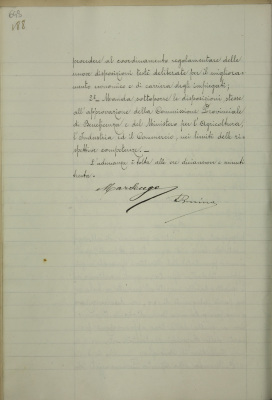 188
provvedere al coordinamento regolamentare delle
nuove disposizioni testè deliberate per il migliora-
mento economico e di carriera degli impiegati;
2° Manda sottoporre le disposizioni stesse
all'approvazione della Commissione Provinciale
di Beneficenza e del Ministero per l'Agricoltura,
l'Industria ed il Commercio, nei limiti delle ri-
spettive competenze. _
L'adunanza è tolta alle ore diciannove e minuti
trenta.